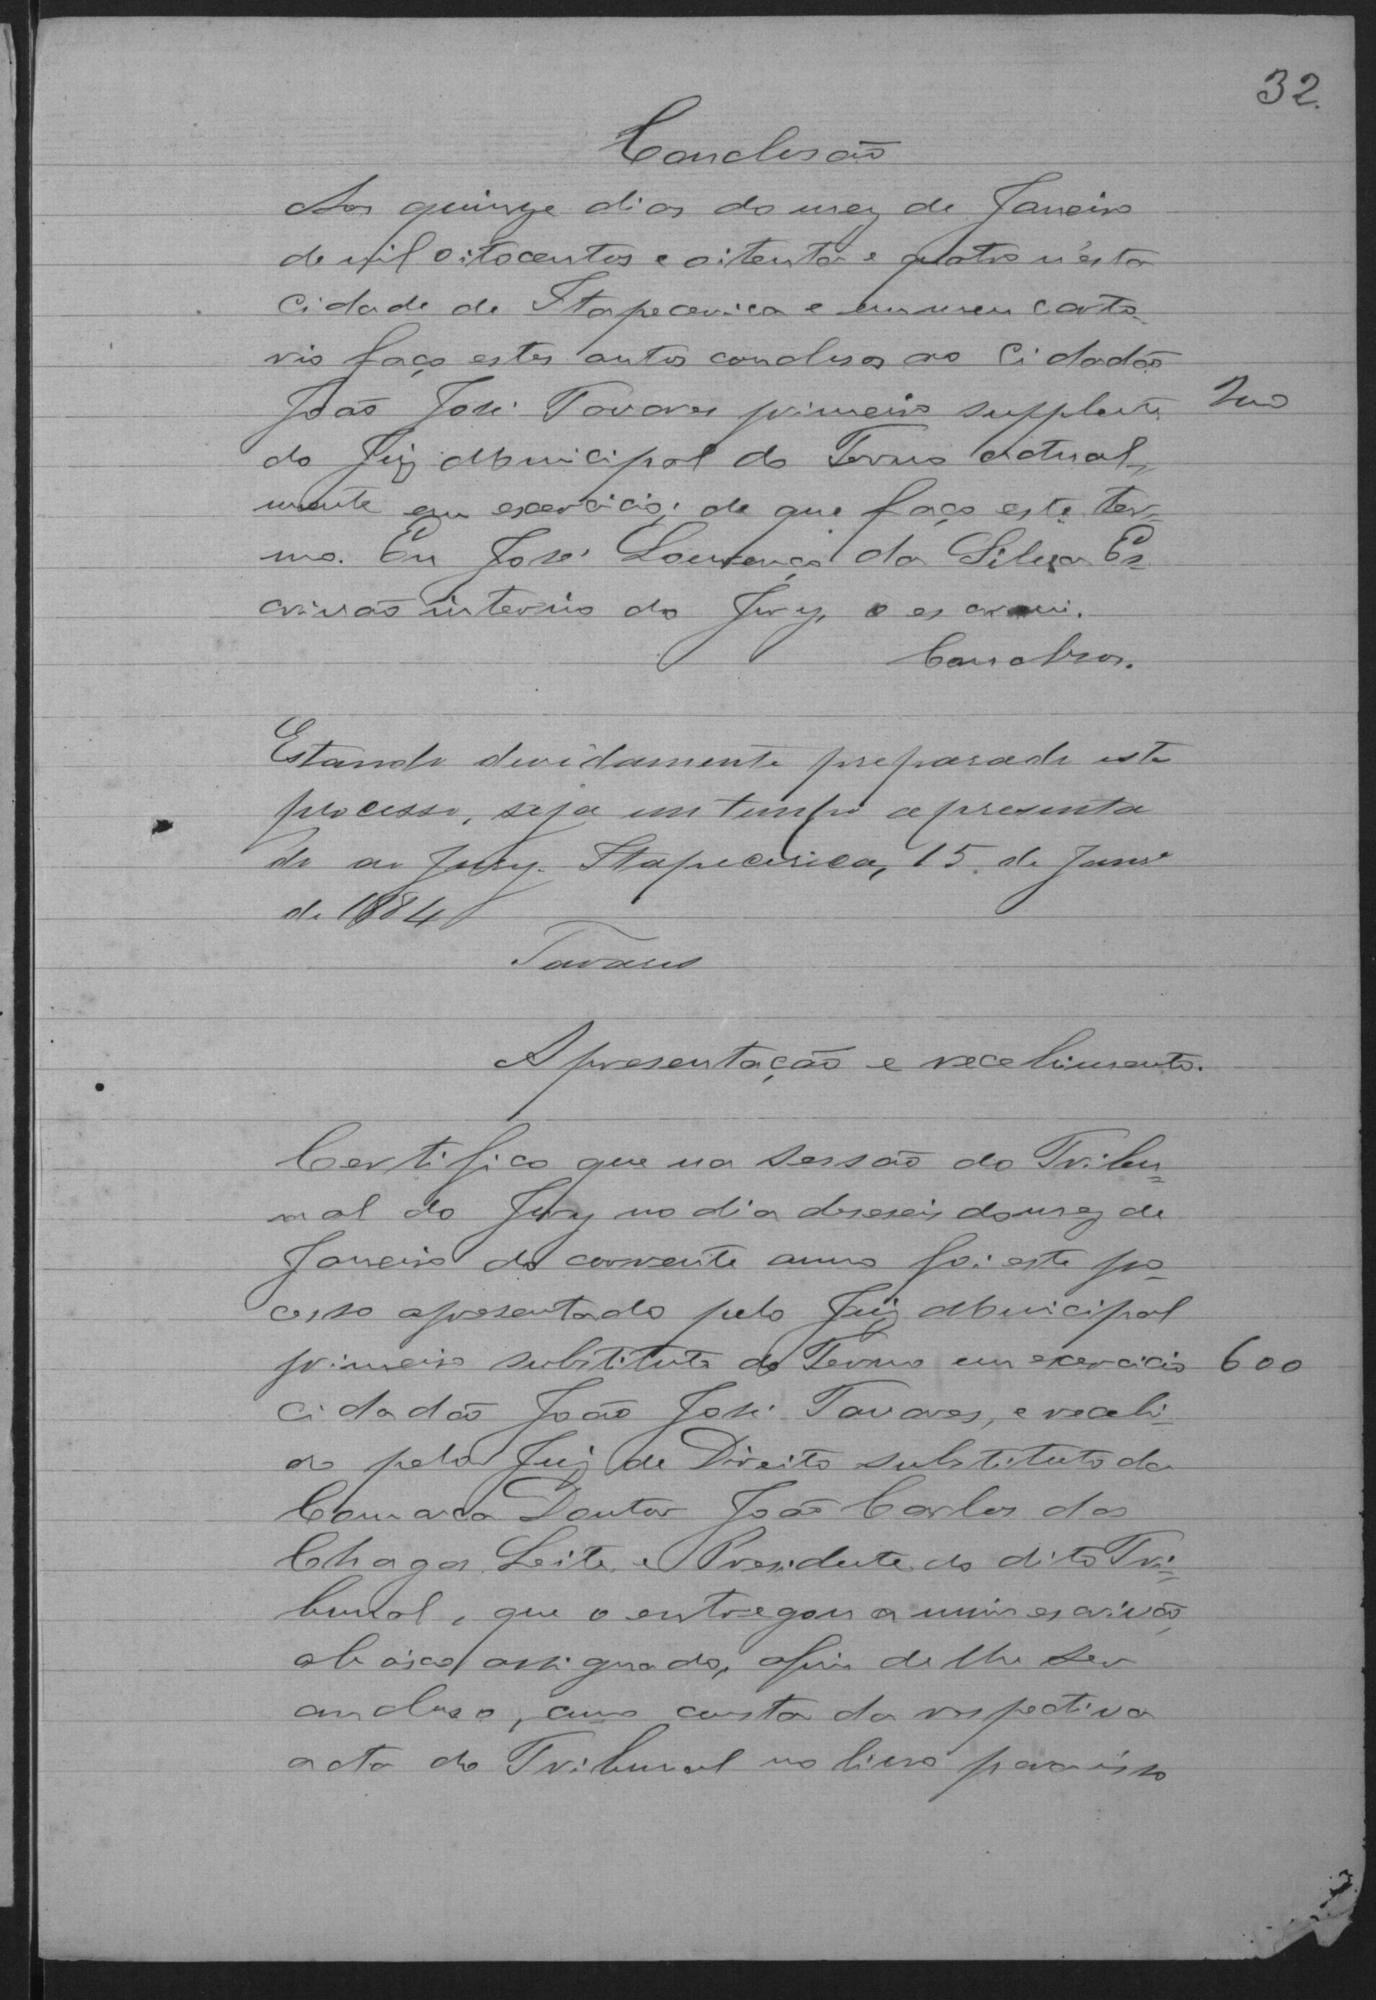 32.
Conclusão
Aos quinze dias do mez de Janeiro
de mil oitocentos e oitenta e quatro n'esta
Cidade de Itapecerica e em meu carto-
rio faço estes autos conclusos ao Cidadão
João José Tavares primeiro supplente 200
do Juiz Municipal do Termo actual-
mente em exercicio; de que faço este ter-
mo. Eu José Lourenço da Silva Es-
crivão interino do Jury, o escrevi.
Conclusos.
Estando devidamente preparado este
processo, seja em tempo apresenta
do ao Jury. Itapecerica, 15 de Janrº
de 1884
Tavares
Apresentação e recebimento.
Certifico que na sessão do Tribu-
nal do Jury no dia deseseis do mez de
Janeiro do corrente anno foi este pro-
cesso apresentado pelo Juiz Municipal
primeiro substituto do Termo em exercicio 600
cidadão João José Tavares, e recebi-
do pelo Juiz de Direito substituto da
Comarca Doutor João Carlos das
Chagas Leite e Presidente do dito Tri-
bunal, que o entregou a mim escrivão
abaixo assignado, afim de lhe ser
concluso, como consta da respectiva
acta do Tribunal no livro para isso